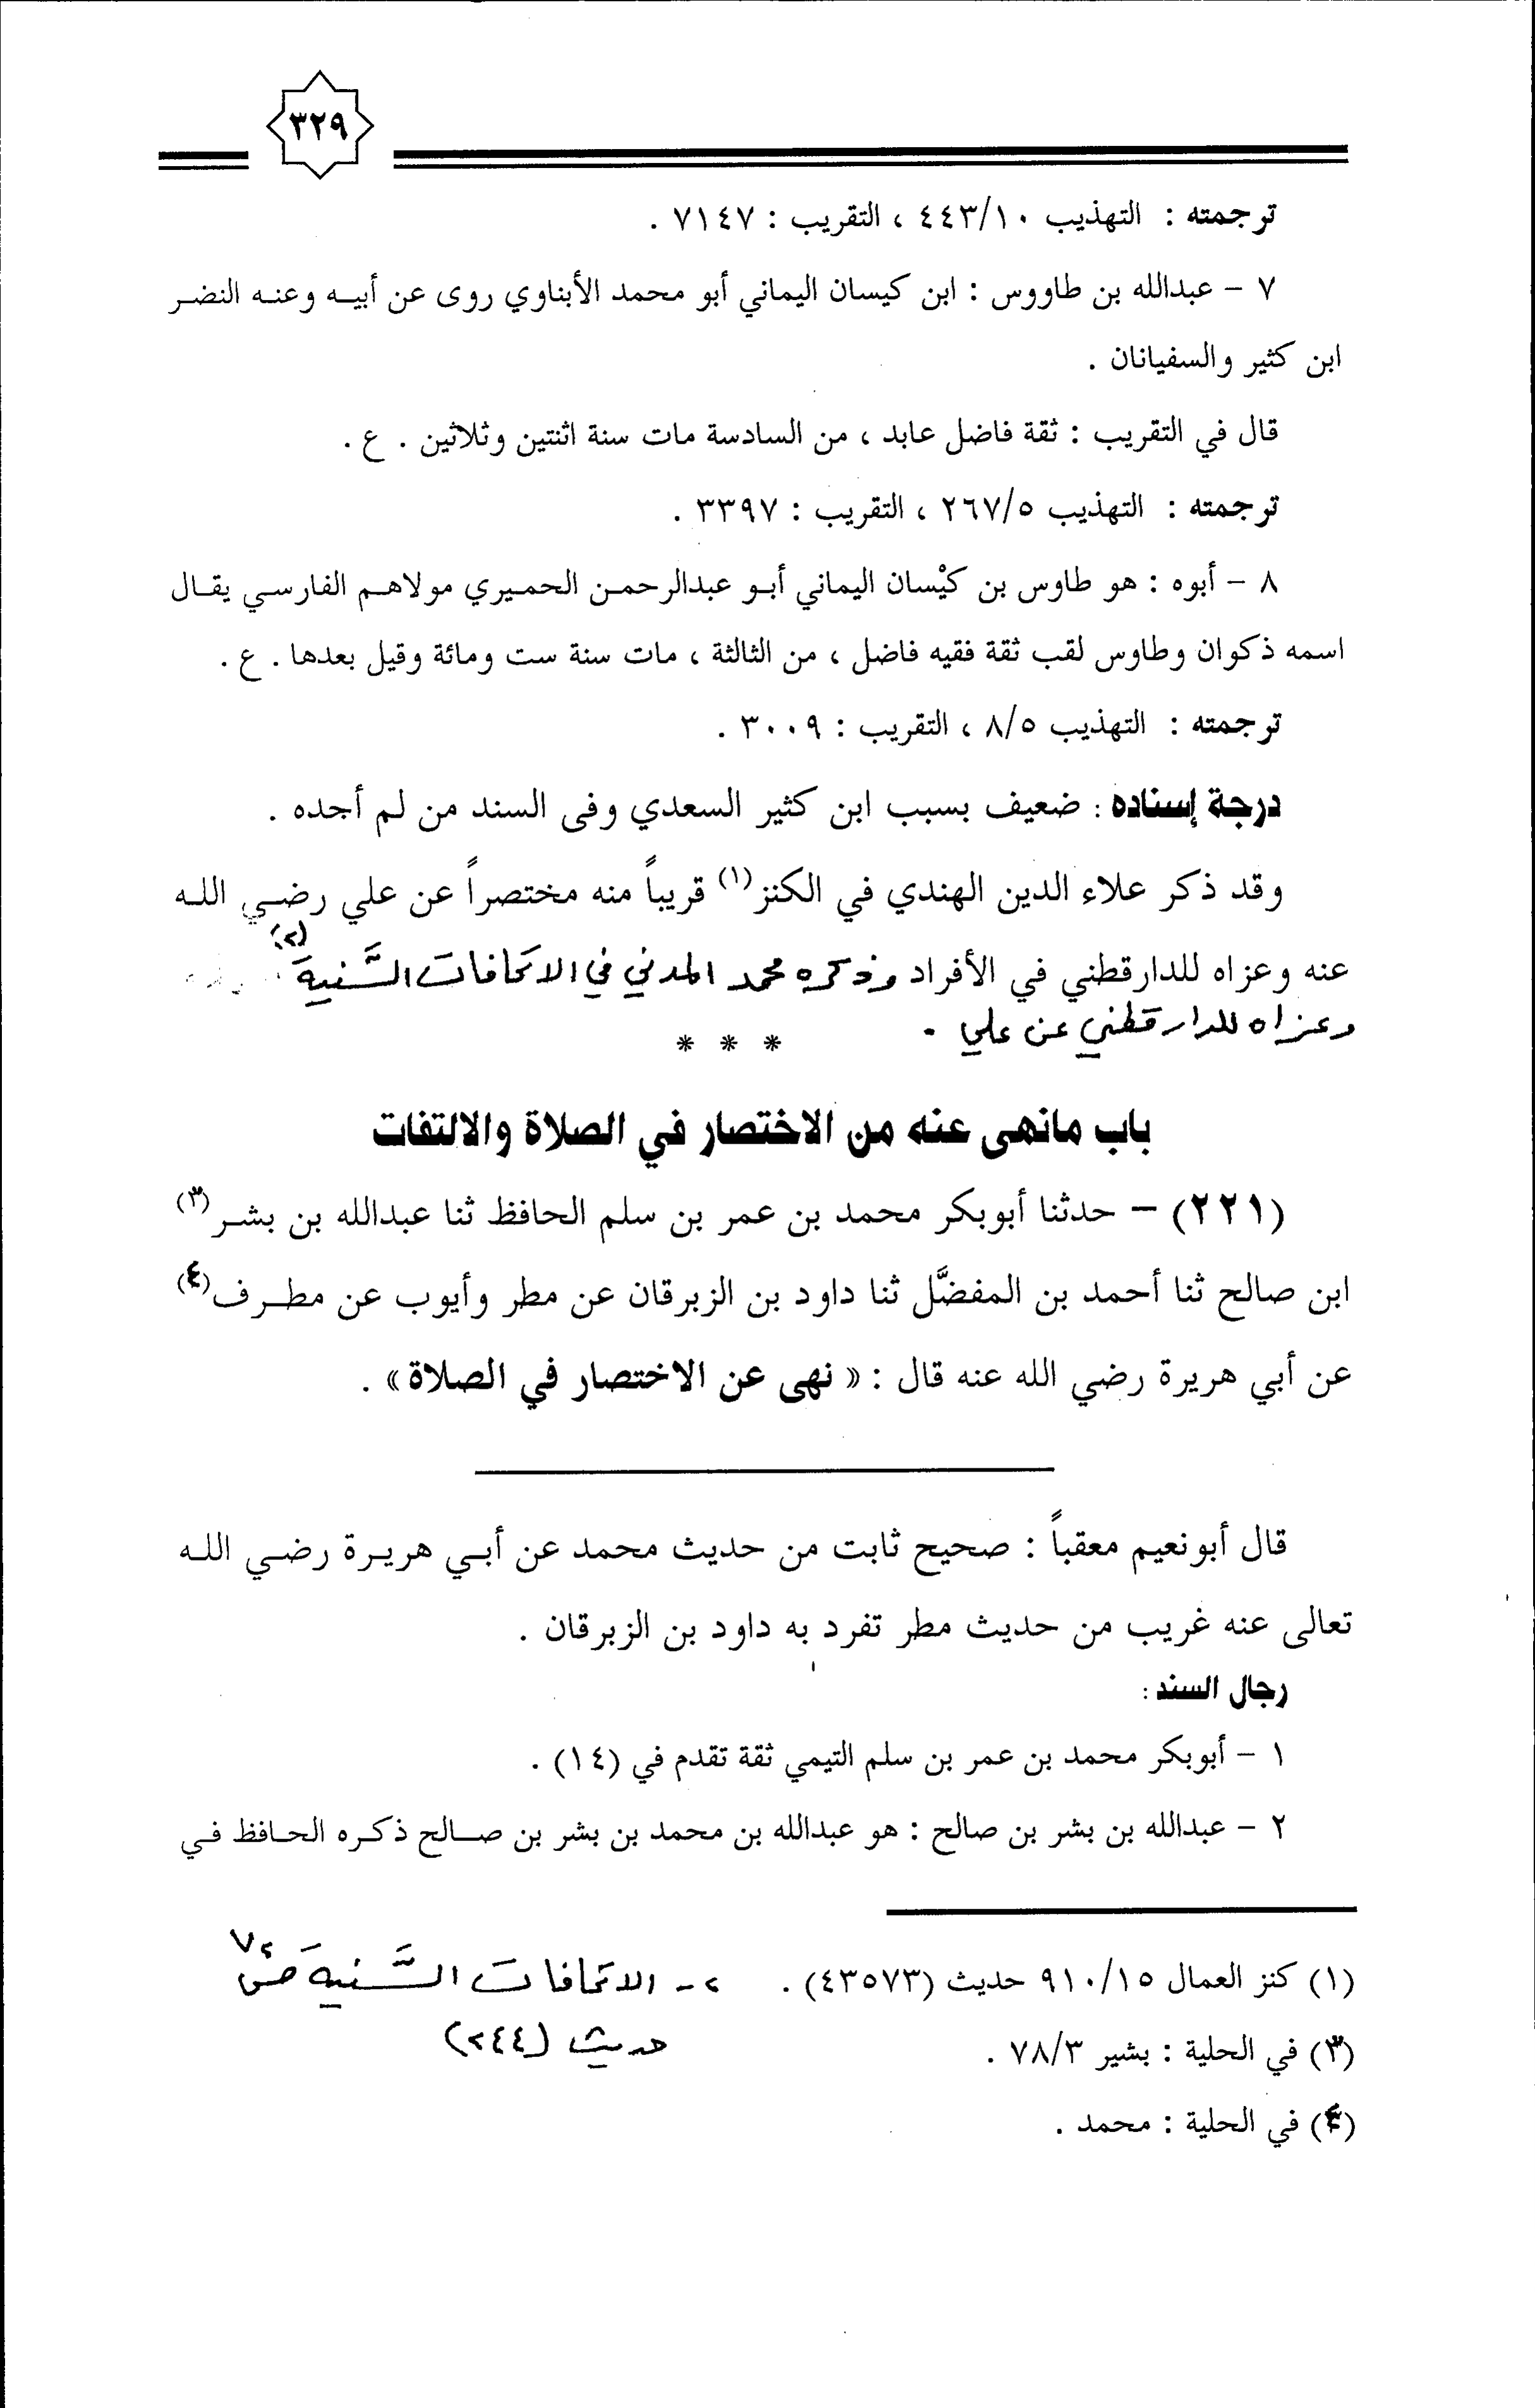 ٣٢٩
ترجمته : التهذيب ٤٤٣/١٠ ، التقريب : ٧١٤٧ .
٧ - عبدالله بن طاووس : ابن كيسان اليماني أبو محمد الأبناوي روى عن أبيه وعنه النضر
ابن كثير والسفيانان .
قال في التقريب : ثقة فاضل عابد ، من السادسة مات سنة اثنتين وثلاثين . ع .
ترجمته : التهذيب ٢٦٧/٥ ، التقريب : ٣٣٩٧ .
٨ - أبوه : هو طاوس بن كيْسان اليماني أبو عبدالرحمن الحميري مولاهم الفارسي يقال
اسمه ذكوان وطاوس لقب ثقة فقيه فاضل ، من الثالثة ، مات سنة ست ومائة وقيل بعدها . ع .
ترجمته : التهذيب ٨/٥ ، التقريب : ٣٠٠٩ .
درجة إسناده : ضعيف بسبب ابن كثير السعدي وفى السند من لم أجده .
وقد ذكر علاء الدين الهندي في الكنز(١) قريباً منه مختصراً عن علي رضي الله
عنه وعزاه للدارقطني في الأفراد وذكره محمد المدني في الاتحافات السَّنية (٢)
وعزاه للدارقطني عن علي .
* * *
باب مانهى عنه من الاختصار في الصلاة والالتفات
(٢٢١) - حدثنا أبوبكر محمد بن عمر بن سلم الحافظ ثنا عبدالله بن بشر(٣)
ابن صالح ثنا أحمد بن المفضَّل ثنا داود بن الزبرقان عن مطر وأيوب عن مطرف(٤)
عن أبي هريرة رضي الله عنه قال : « نهى عن الاختصار في الصلاة» .
قال أبونعيم معقباً : صحيح ثابت من حديث محمد عن أبي هريرة رضي الله
تعالى عنه غريب من حديث مطر تفرد به داود بن الزبرقان .
رجال السند :
١ - أبوبكر محمد بن عمر بن سلم التيمي ثقة تقدم في (١٤) .
٢ - عبدالله بن بشر بن صالح : هو عبدالله بن محمد بن بشر بن صالح ذكره الحافظ في
(١) كنز العمال ٩١٠/١٥ حديث (٤٣٥٧٣) .
٢ - الاتحافات السَّنية ص ٧٢
حديث (٢٤٤)
(٣) في الحلية : بشير ٧٨/٣ .
(٤) في الحلية : محمد .